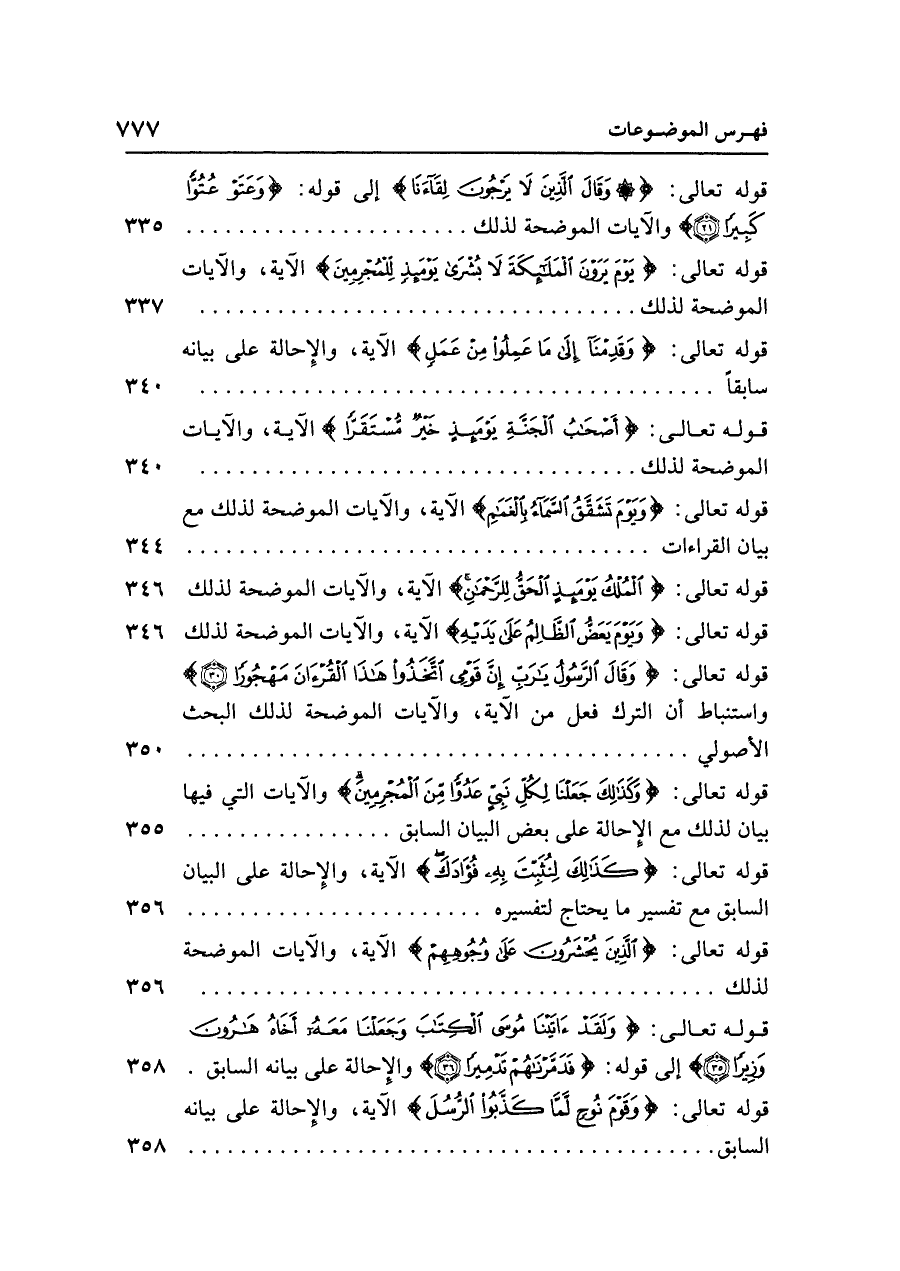 فهـرس الموضـوعات ٧٧٧
قوله تعالى: ﴿ ۞ وَقَالَ ٱلَّذِينَ لَا يَرْجُونَ لِقَآءَنَا ﴾ إلى قوله: ﴿ وَعَتَوْ عُتُوًّا
كَبِيرًا ۝٢١ ﴾ والآيات الموضحة لذلك . . . . . . . . . . . . . . . . . . . . . ٣٣٥
قوله تعالى: ﴿ يَوْمَ يَرَوْنَ ٱلْمَلَـٰٓئِكَةَ لَا بُشْرَىٰ يَوْمَئِذٍ لِّلْمُجْرِمِينَ ﴾ الآية، والآيات
الموضحة لذلك . . . . . . . . . . . . . . . . . . . . . . . . . . . . . . . . . ٣٣٧
قوله تعالى: ﴿ وَقَدِمْنَآ إِلَىٰ مَا عَمِلُوا۟ مِنْ عَمَلٍ ﴾ الآية، والإحالة على بيانه
سابقاً . . . . . . . . . . . . . . . . . . . . . . . . . . . . . . . . . . . . . . . ٣٤٠
قـولـه تعـالـى: ﴿ أَصْحَـٰبُ ٱلْجَنَّةِ يَوْمَئِذٍ خَيْرٌ مُّسْتَقَرًّا ﴾ الآيـة، والآيـات
الموضحة لذلك . . . . . . . . . . . . . . . . . . . . . . . . . . . . . . . . . ٣٤٠
قوله تعالى: ﴿ وَيَوْمَ تَشَقَّقُ ٱلسَّمَآءُ بِٱلْغَمَـٰمِ ﴾ الآية، والآيات الموضحة لذلك مع
بيان القراءات . . . . . . . . . . . . . . . . . . . . . . . . . . . . . . . . . . . ٣٤٤
قوله تعالى: ﴿ ٱلْمُلْكُ يَوْمَئِذٍ ٱلْحَقُّ لِلرَّحْمَـٰنِ ۚ ﴾ الآية، والآيات الموضحة لذلك ٣٤٦
قوله تعالى: ﴿ وَيَوْمَ يَعَضُّ ٱلظَّالِمُ عَلَىٰ يَدَيْهِ ﴾ الآية، والآيات الموضحة لذلك ٣٤٦
قوله تعالى: ﴿ وَقَالَ ٱلرَّسُولُ يَـٰرَبِّ إِنَّ قَوْمِى ٱتَّخَذُوا۟ هَـٰذَا ٱلْقُرْءَانَ مَهْجُورًا ۝٣٠ ﴾
واستنباط أن الترك فعل من الآية، والآيات الموضحة لذلك البحث
الأصولي . . . . . . . . . . . . . . . . . . . . . . . . . . . . . . . . . . . . . ٣٥٠
قوله تعالى: ﴿ وَكَذَٰلِكَ جَعَلْنَا لِكُلِّ نَبِىٍّ عَدُوًّا مِّنَ ٱلْمُجْرِمِينَ ۗ ﴾ والآيات التي فيها
بيان لذلك مع الإحالة على بعض البيان السابق . . . . . . . . . . . . . . . . ٣٥٥
قوله تعالى: ﴿ كَذَٰلِكَ لِنُثَبِّتَ بِهِۦ فُؤَادَكَ ۖ ﴾ الآية، والإحالة على البيان
السابق مع تفسير ما يحتاج لتفسيره . . . . . . . . . . . . . . . . . . . . . . . ٣٥٦
قوله تعالى: ﴿ ٱلَّذِينَ يُحْشَرُونَ عَلَىٰ وُجُوهِهِمْ ﴾ الآية، والآيات الموضحة
لذلك . . . . . . . . . . . . . . . . . . . . . . . . . . . . . . . . . . . . . . . ٣٥٦
قـولـه تعـالـى: ﴿ وَلَقَدْ ءَاتَيْنَا مُوسَى ٱلْكِتَـٰبَ وَجَعَلْنَا مَعَهُۥٓ أَخَاهُ هَـٰرُونَ
وَزِيرًا ۝٣٥ ﴾ إلى قوله: ﴿ فَدَمَّرْنَـٰهُمْ تَدْمِيرًا ۝٣٦ ﴾ والإحالة على بيانه السابق . ٣٥٨
قوله تعالى: ﴿ وَقَوْمَ نُوحٍ لَّمَّا كَذَّبُوا۟ ٱلرُّسُلَ ﴾ الآية، والإحالة على بيانه
السابق . . . . . . . . . . . . . . . . . . . . . . . . . . . . . . . . . . . . . . . ٣٥٨